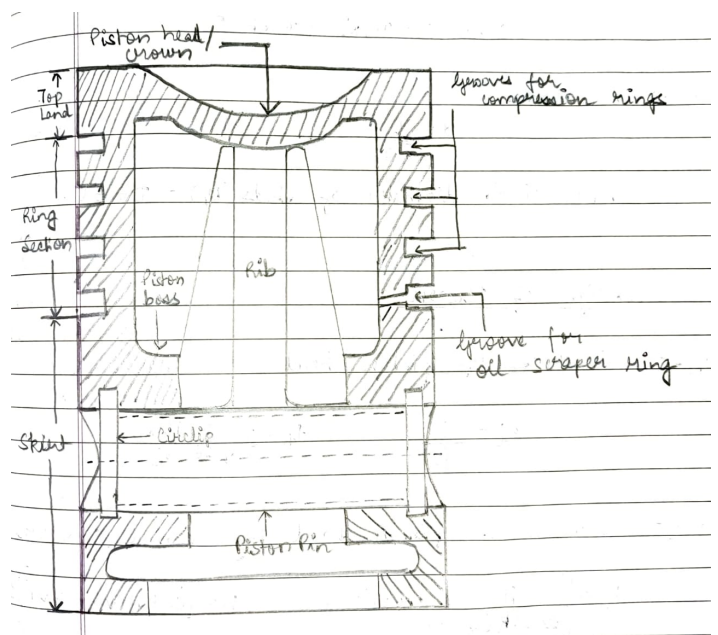 Piston head/
crown
Top
Land
Grooves for
compression rings
Ring
Section
Piston
boss
Rib
Groove for
oil scraper ring
Skirt
Circlip
Piston Pin